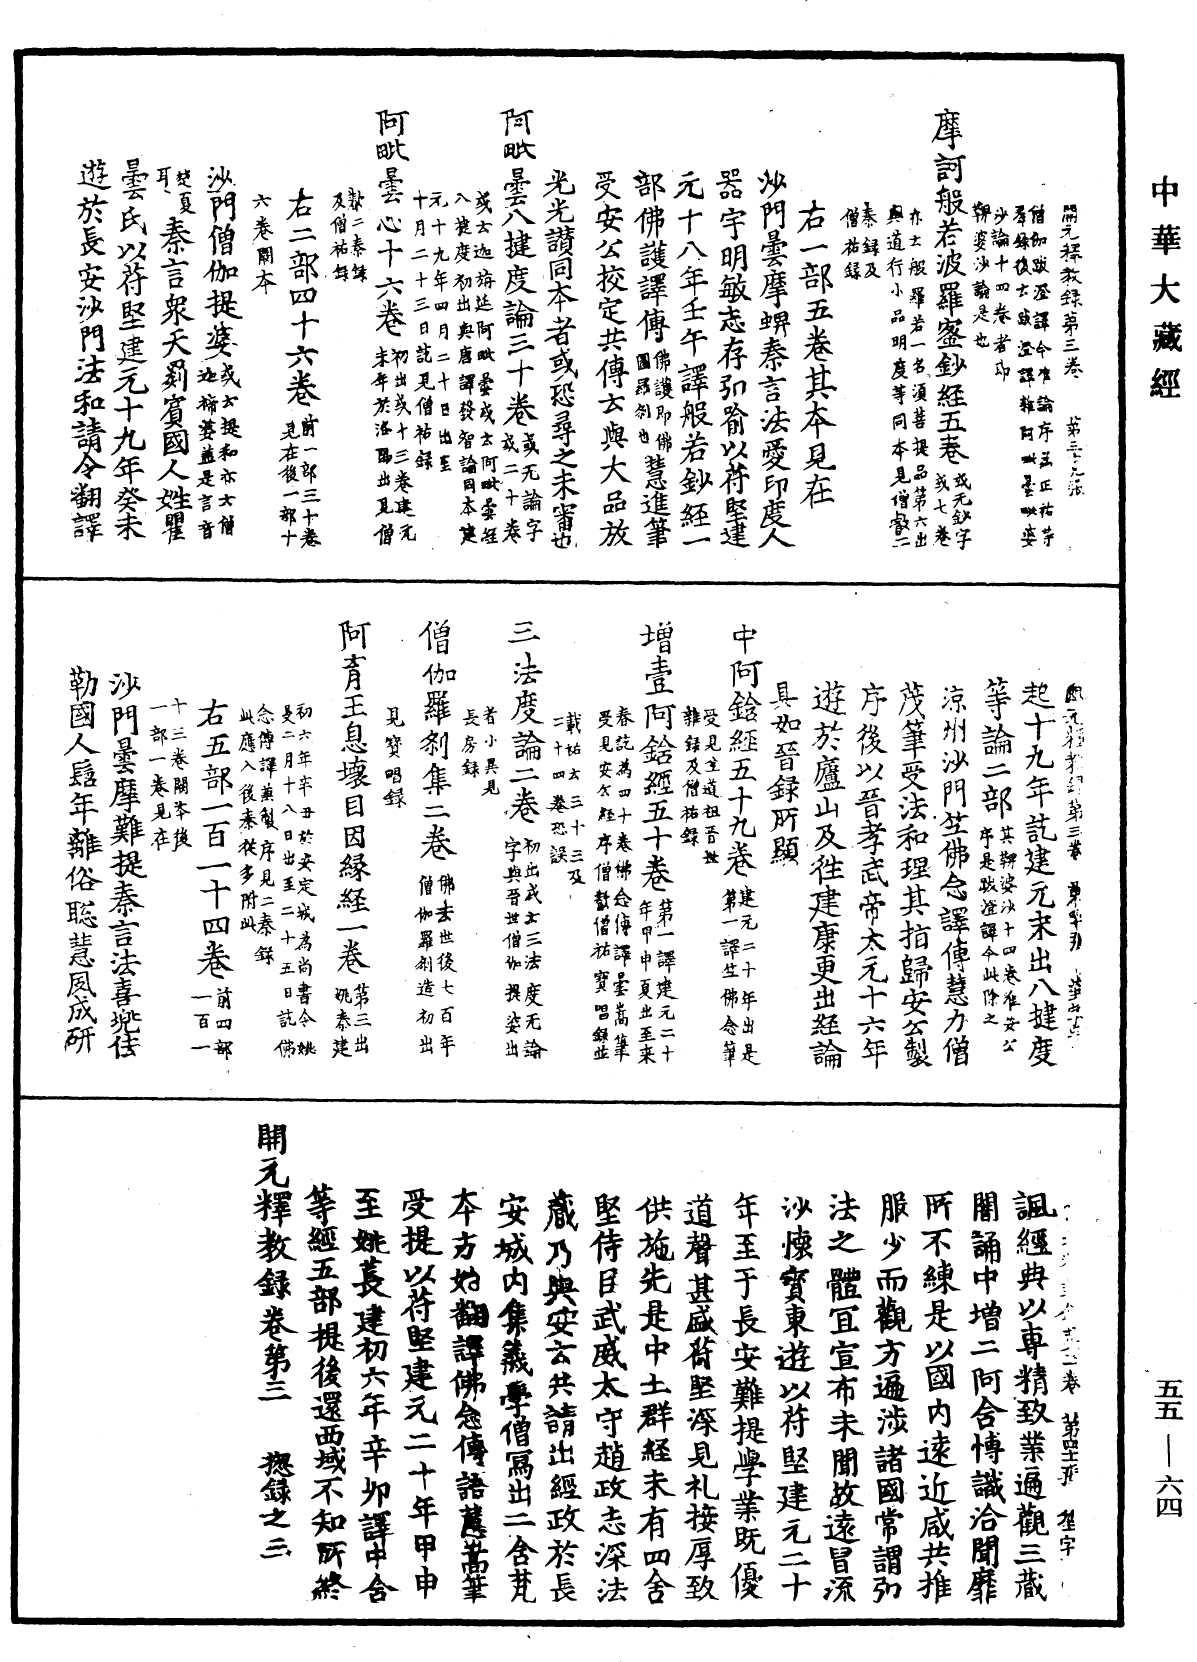 中華大藏經
開元釋教録第三卷　第三九張
僧伽跋澄譯今准論序益正祐等
群録後云跋澄譯雜阿毗曇毗婆
沙論十四卷者即
鞞婆沙論是也
摩訶般若波羅蜜鈔經五卷或无鈔字或七卷
亦云般羅若一名須菩提品第六出
與道行小品明度等同本見僧叡二
秦録及
僧祐録
右一部五卷其本見在
沙門曇摩蜱秦言法愛印度人
器宇明敏志存弘喻以苻堅建
元十八年壬午譯般若鈔經一
部佛護譯傳佛護即佛圖羅剎也慧進筆
受安公挍定共傳云與大品放
光光讃同本者或恐尋之未審也
阿毗曇八揵度論三十卷或无論字或二十卷
或云迦旃延阿毗曇或云阿毗曇經
八揵度初出與唐譯發智論同本建
元十九年四月二十日出至
十月二十三日訖見僧祐録
阿毗曇心十六卷初出或十三卷建元末年於洛陽出見僧
叡二秦録
及僧祐録
右二部四十六卷前一部三十卷見在後一部十
六卷闕本
沙門僧伽提婆或云提和亦云僧迦禘婆蓋是言音
楚夏耳秦言衆天罽賓國人姓瞿
曇氏以苻堅建元十九年癸未
遊於長安沙門法和請令翻譯
起十九年訖建元末出八揵度
等論二部其鞞婆沙十四卷准安公序是跋澄譯今此除之
凉州沙門竺佛念譯傳慧力僧
茂筆受法和理其指歸安公製
序後以晉孝武帝太元十六年
遊於廬山及往建康更出經論
具如晉録所顯
中阿鋡經五十九卷建元二十年出是第一譯竺佛念筆
受見竺道祖晉世
雜録及僧祐録
增壹阿鋡經五十卷第一譯建元二十年甲申夏出至來
春訖為四十卷佛念傳譯曇嵩筆
受見安公經序僧叡僧祐寶唱録並
載祐云三十三及
二十四卷恐誤
三法度論二卷初出或云三法度无論字與晉世僧伽提婆出
者小異見
長房録
僧伽羅剎集二卷佛去世後七百年僧伽羅剎造初出
見寶唱録
阿育王息壞目因緣經一卷第三出姚秦建
初六年辛丑於安定城為尚書令姚
旻二月十八日出至二十五日訖佛
念傳譯兼製序見二秦録
此應入後秦從多附此
右五部一百一十四卷前四部一百一
十三卷闕本後
一部一卷見在
沙門曇摩難提秦言法喜兠佉
勒國人齠年離俗聡慧夙成研
第四十張　槿字
諷經典以專精致業遍觀三藏
闇誦中增二阿含愽識洽聞靡
所不練是以國内遠近咸共推
服少而觀方遍涉諸國常謂弘
法之體冝宣布未聞故遠冒流
沙懷寳東遊以苻堅建元二十
年至于長安難提學業既優
道聲甚盛苻堅深見礼接厚致
供施先是中土群經未有四含
堅侍臣武威太守趙政志深法
藏乃與安公共請出經政於長
安城内集義學僧寫出二含梵
本方始翻譯佛念傳語慧嵩筆
受提以苻堅建元二十年甲申
至姚萇建初六年辛卯譯中含
等經五部提後還西域不知所終
開元釋教録卷第三　揔録之三
五五—六四